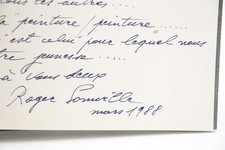 ous ces autres....
la "peinture/peinture"....
'est celui pour lequel nous
tre jeunesse.....
à vous deux
Roger Somville
mars 1988